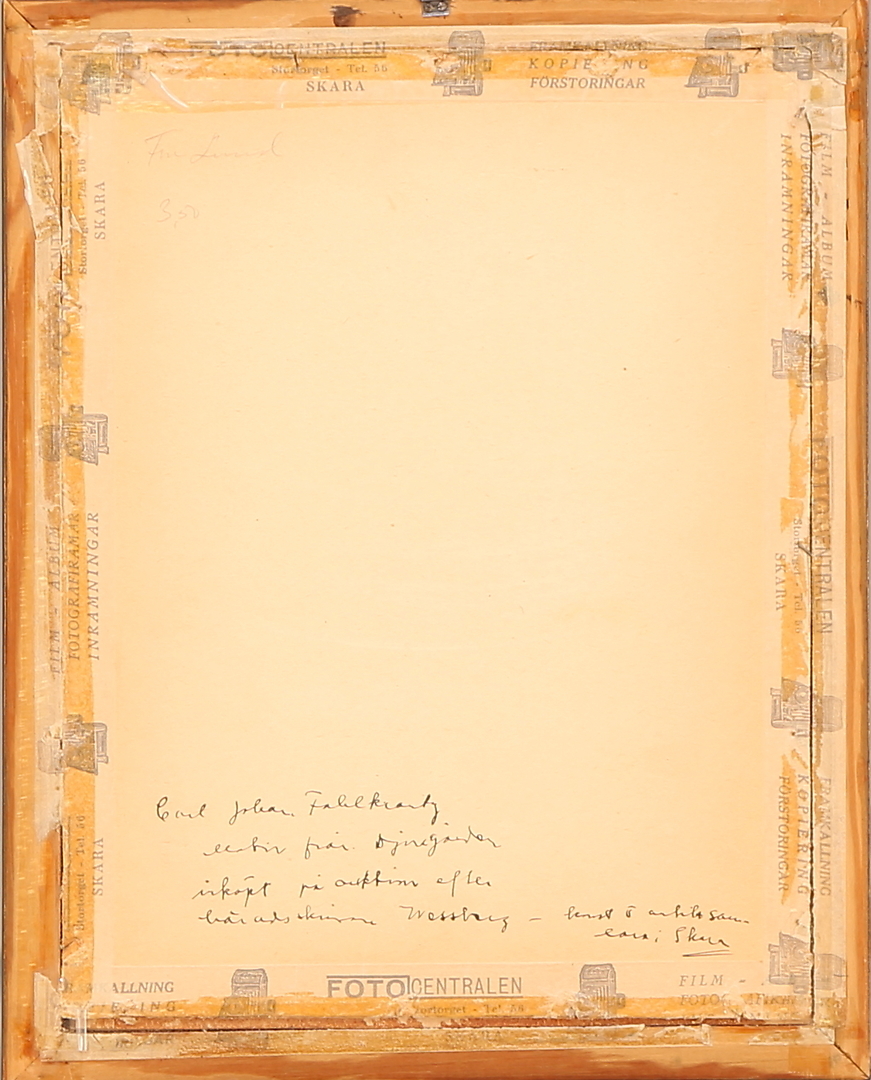 FOTOCENTRALEN
Stortorget - Tel. 56
SKARA
FRAMKALLNING
KOPIERING
FÖRSTORINGAR
Fru Lund
3,50
Stortorget - Tel. 56
SKARA
FILM - ALBUM
FOTOGRAFIRAMAR
INRAMNINGAR
FILM - ALBUM
FOTOGRAFIRAMAR
INRAMNINGAR
FOTOCENTRALEN
Stortorget - Tel. 56
SKARA
FRAMKALLNING
KOPIERING
FÖRSTORINGAR
Stortorget - Tel. 56
SKARA
Carl Johan Fahlkrantz
motiv från Djurgården
inköpt på auktion efter
häradsskrivare Wessberg - konst & antiksam-
lare i Skara
FRAMKALLNING
FOTOCENTRALEN
Stortorget - Tel. 56
SKARA
FILM -